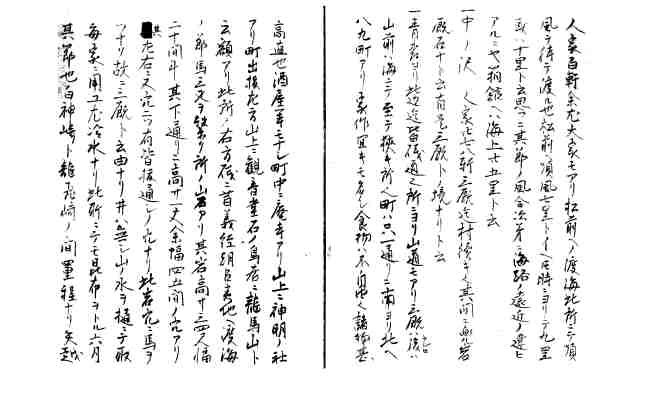 人家百軒余尤大家モアリ松前ヘノ渡海此所ニテ順
風ヲ待テ渡ル也松前ヘ順風七里トイヘ圧時ニヨリテ九里
或ハ十里ト云思フニ其節ノ風合次第ニ海路ノ遠近ノ違ヒ
アルニヤ箱館ヘハ海上七五里ト云
一中ノ沢 人家七八軒三厩迄村続ニテ其間ニ
厩石ナト云有是三厩ト境ナリト云
一此辺迄皆磯通之所ニヨリ山道モアリ三厩ハ後ハ
山前ハ海ニテ至テ狭キ所ヘ町ハ只一通リニ南ヨリ北ヘ
八九町アリ家作宜キモ多シ食物ハ不自由ニテ諸物甚
高直也酒屋一軒モナシ町中ニ庵寺アリ山上ニ神明ノ社
アリ町出技左方山上ニ観音堂石ノ鳥居ニ龍馬山ト
云額アリ此所ノ右方磯ニ昔義経朝臣夷地ヘ渡海
ノ節馬三疋ヲ繋ク所ノ山岩アリ其岩高サ三四丈幅
二十間斗其下通リニ高サ一丈余幅四五間ノ穴アリ
其左右ニ又穴二ツ有皆抜通シノ穴ナリ此岩穴ニ馬ヲ
ツナリ故ニ三厩ト云由ナリ井ハ無シ山ノ水ヲ樋ニテ取
毎家ニ用ユ尤冷水ナリ此所ニテモ昆布ヲトル六月
其節也白神崎ト龍飛崎ノ間壱里程ナリ矢越